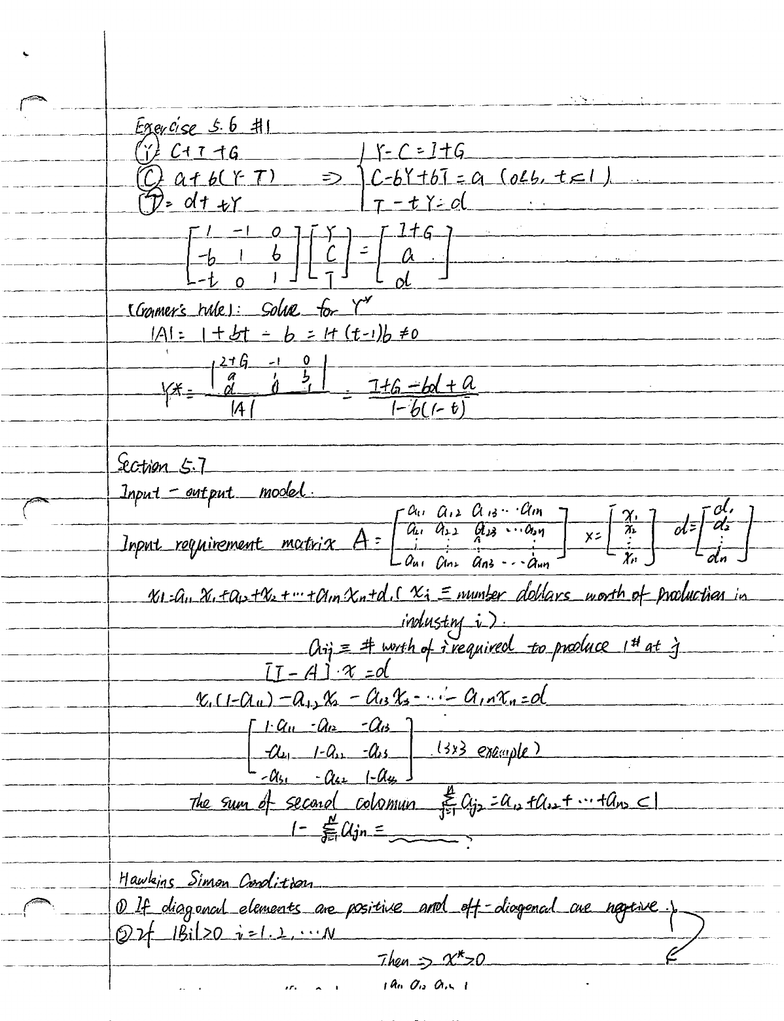 Exercise 5.6 #1
Y = C+I+G | Y-C=I+G
C = a+b(Y-T) ⇒ C-bY+bT=a (0<b, t<1)
T = d+ tY | T-tY=d
[1 -1 0] [Y] = [I+G]
[-b 1 b] [C] [a]
[-t 0 1] [T] [d]
(Cramer's rule): Solve for Y*
|A|= 1+bt - b = 1+(t-1)b ≠0
|I+G -1 0|
|a 1 b|
|d 0 1|
Y*= / |A| = I+G-bd+a / 1-b(1-t)
Section 5.7
Input-output model.
Input requirement matrix A= [a11 a12 a13 ... a1n] x= [x1] d= [d1]
[a21 a22 a23 ... a2n] [x2] [d2]
[⋮ ⋮ ⋮ ⋮] [⋮] [⋮]
[an1 an2 an3 ... ann] [xn] [dn]
x1=a11 x1+a12+x2+...+a1n xn+d1 ( xi ≡ number dollars worth of production in
industry i).
aij ≡ # worth of i required to produce 1# at j
[I-A]·x=d
x1(1-a11)-a12x2-a13x3-...-a1nxn=d
[1-a11 -a12 -a13]
[-a21 1-a22 -a23] (3x3 example)
[-a31 -a32 1-a33]
The sum of second colomun Σ(j=1, N) aj2=a12+a22+...+an2 <1
1- Σ(j=1, N) ajn = ______?
Hawkins Simon Condition
① If diagonal elements are positive and off-diagonal are negtive.
② If |Bi|>0 i=1.2,...N
Then ⇒ x*>0
|a11 a12 a13 |